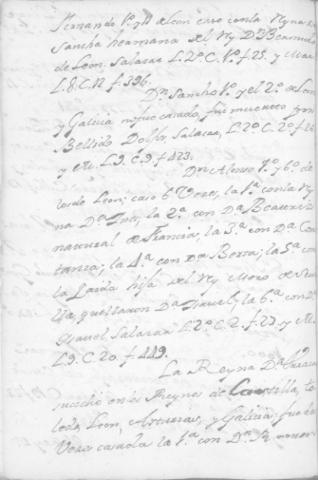 Fernando 1º y 1º de Leon caso con la Reyna Dª
Sancha hermana del Rey D. Bermudo
de Leon. Salazar L. 2º C. 1º f. 25. y Mar.
L. 8. C. 12 f. 396.
Dn. Sancho 1º y el 2º de Leon
y Galicia no fue casado, fue muerto por
Bellido Dolfos, Salazar, L. 2º C. 2º f. 26
y M. L. 9. C. 9 f. 423.
Dn. Alonso 1º y 6º de
los de Leon; caso 6 Vezes, la 1ª con la Rey
na Dª Ines, la 2ª con Dª Beatriz
natural de Francia, la 3ª con Dª Cons
tanza; la 4ª con Dª Berta; la 5ª con
la Zaida hija del Rey Moro de Sevi
lla, que llamaron Dª Isavel; la 6ª con Dª
Isavel. Salazar L. 2º C. 2. f. 27. y M.
L. 9. C. 20. f. 449.
La Reyna Dª Urraca
sucedio en los Reynos de Castilla, To
ledo, Leon, Asturias, y Galicia; fue dos
Vezes casada la 1ª con Dn. Ramon